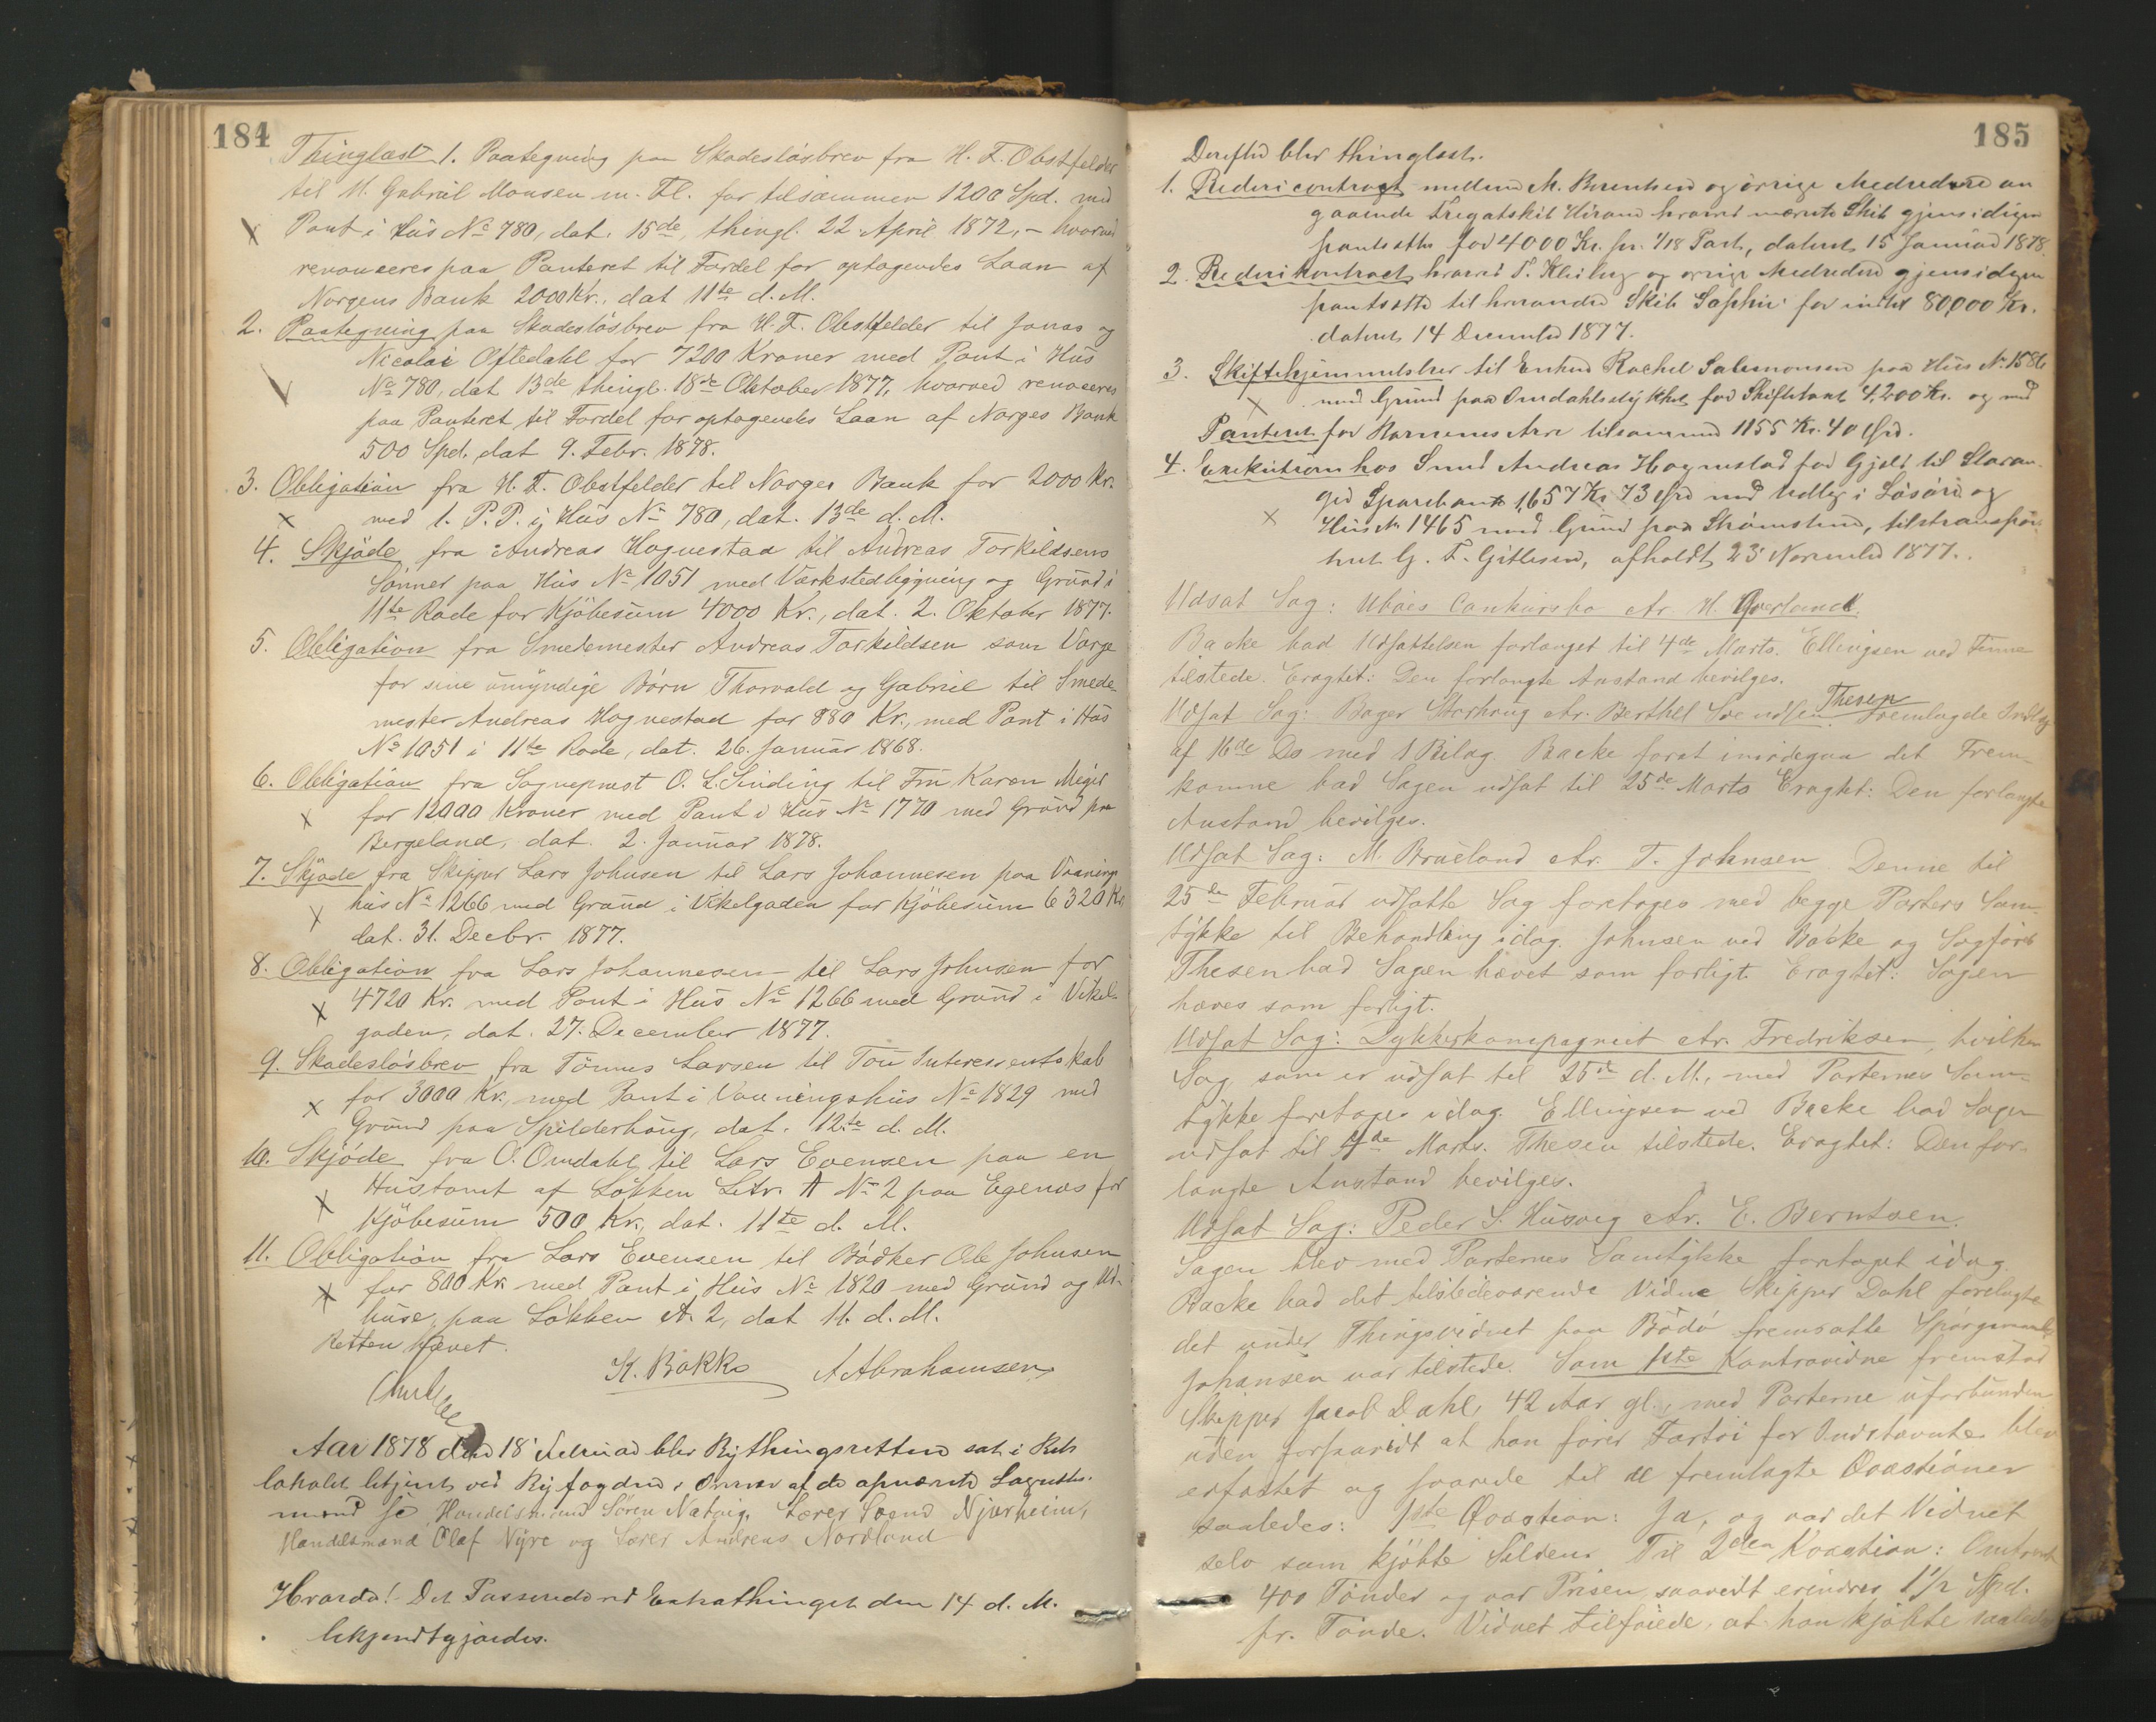 184
Thinglæst 1. Paategning paa Skadesløsbrev fra H. F. Obstfelder
til M. Gabriel Monsen m. Fl. for tilsammen 1200 Spd. med
Pant i Hus No 780, dat. 15de, thingl. 22 April 1872, – hvorved
renonceres paa Panteret til Fordel for optagendes Laan af
Norges Bank 2000 Kr., dat 11te d. M.
2. Paategning paa Skadesløsbrev fra H. F. Obstfelder til Jonas og
Nicolai Oftedahl for 7200 Kroner med Pant i Hus
No 780, dat 13de thingl. 18de Oktober 1877, hvorved renonceres
paa Panteret til Fordel for optagendes Laan af Norges Bank
500 Spd. dat 9. Febr. 1878.
3. Obligation fra H. F. Obstfelder til Norges Bank for 2000 Kr.
med 1. P. P. i Hus No 780, dat. 13de d. M.
4. Skjøde fra Andreas Hognestad til Andreas Torkildsens
Sønner paa Hus No 1051 med Værkstedbygning og Grund i
11te Rode for Kjøbesum 4000 Kr., dat. 2. Oktober 1877.
5. Obligation fra Smedemester Andreas Torkildsen som Værge
for sine umyndige Børn Thorvald og Gabriel til Smede-
mester Andreas Hognestad for 880 Kr., med Pant i Hus
No 1051 i 11te Rode, dat. 26. Januar 1868.
6. Obligation fra Sogneprest O. L. Sinding til Frk Karen Meyer
for 12000 Kroner med Pant i Hus No 1770 med Grund paa
Bergeland, dat. 2. Januar 1878.
7. Skjøde fra Skipper Lars Johnsen til Lars Johannesen paa Vaanings
hus No 1266 med Grund i Vikelgaden for Kjøbesum 6320 Kr.
dat. 31. Decbr. 1877.
8. Obligation fra Lars Johannesen til Lars Johnsen for
4720 Kr. med Pant i Hus No 1266 med Grund i Vikel-
gaden, dat. 27. December 1877.
9. Skadesløsbrev fra Tønnes Larsen til Tou Interessentskab
for 3000 Kr. med Pant i Vaaningshus No 1829 med
Grund paa Spilderhaug, dat. 12te d. M.
10. Skjøde fra O. Omdahl til Lars Evensen paa en
Hustomt af Løkken Litr. A No 2 paa Egenæs for
Kjøbesum 500 Kr., dat. 11te d. M.
11. Obligation fra Lars Evensen til Bødker Ole Johnsen
for 800 Kr. med Pant i Hus No 1820 med Grund og Ud-
huse, paa Løkken A. 2, dat 11. d. M.
Retten hævet.
K. Bakke A Abrahamsen
Aar 1878 den 18 Februar blev Bythingsretten sat i Rets
lokalet betjent ved Byfogden i Overvær af de opnævnte Lagretts-
mænd se Handelsmand Søren Natvig, Lærer Svend Njærheim,
Handelsmand Olaf Nyre og Lærer Andreas Nordland
Hvorda! Det Passerede ved Extrathinget den 14 d. M.
bekjendtgjordes.
185
Derefter blev thinglæst.
1. Redericontract mellem M. Berentsen og øvrige Medredere an
gaaende Fregatskib Hiram hvorved nævnte Skib gjensidigen
pantsættes for 4000 Kr. pr. 1/18 Part, dateret 15 Januar 1878
2. Rederikontract hvorved T. Kleiberg og øvrige Medredere gjensidigen
pantsætte til hverandre Skib Saphir for indtil 80,000 Kr.
dateret 14 December 1877.
3. Skiftehjemmelsbrev til Enken Rachel Salomonsen paa Hus No 1586
med Grund paa Omdahlsstykket for Skiftetaxt 4,200 Kr. og med
Panteret for Børnenes Arv tilsammen 1155 Kr. 40 Øre.
4. Exekution hos Smed Andreas Hognestad for Gjæld til Stavan-
ger Sparebank 1,657 Kr 73 Øre med Udlæg i Løsøre og
Hus No 1465 med Grund paa Strømsteen, tilstransfor-
teret G. F. Gitlesen, afholdt 23 November 1877.
Udsat Sag: Uboes Conkursbo ctr. H. Qverland.
Backe bad Udsættelsen forlænget til 4de Marts. Ellingsen ved Finne
tilstede. Eragtet: Den forlangte Anstand bevilges.
Udsat Sag: Bager Storhaug ctr. Berthel Svendsen. Thesen fremlagde Indlæg
af 16de Ds med 1 Bilag. Backe forat imødegaa det Frem-
komne bad Sagen udsat til 25de Marts Eragtet: Den forlangte
Anstand bevilges.
Udsat Sag: M. Braeland ctr. T. Johnsen. Denne til
25de Februar udsatte Sag foretages med begge Parters Sam-
tykke til Behandling idag. Johnsen ved Backe og Sagfører
Thesen bad Sagen hævet som forligt. Eragtet: Sagen
hæves som forligt.
Udsat Sag: Dykkerkompagniet ctr. Fredriksen, hvilken
Sag, som er udsat til 25de d. M., med Parternes Sam-
tykke foretages idag. Ellingsen ved Backe bad Sagen
udsat til 4de Marts. Thesen tilstede. Eragtet: Den for-
langte Anstand bevilges.
Udsat Sag: Peder S. Husveg ctr. E. Berntsen.
Sagen blev med Parternes Samtykke foretaget idag.
Backe bad det tilstedeværende Vidne Skipper Dahl forelagte
det under Thingsvidnet paa Bodø fremsatte Spørgsmaal.
Johansen var tilstede. Som 1ste Kontravidne fremstod
Skipper Jacob Dahl, 42 Aar gl., med Parterne uforbunden
uden forsaavidt at han fører Fartøi for Indstævnte blev
edfæstet og svarede til de fremlagte Qvæstioner
saaledes: 1ste Qvæstion: Ja, og var det Vidnet
selv som kjøbte Silden. Til 2den Kvæstion: Omtrent
400 Tønder og var Prisen saavidt erindres 1 1/2 Spd.
pr. Tønde. Vidnet tilføiede, at han kjøbte saaledes